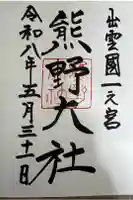 出雲國一之宮
熊野大社
令和八年五月三十一日